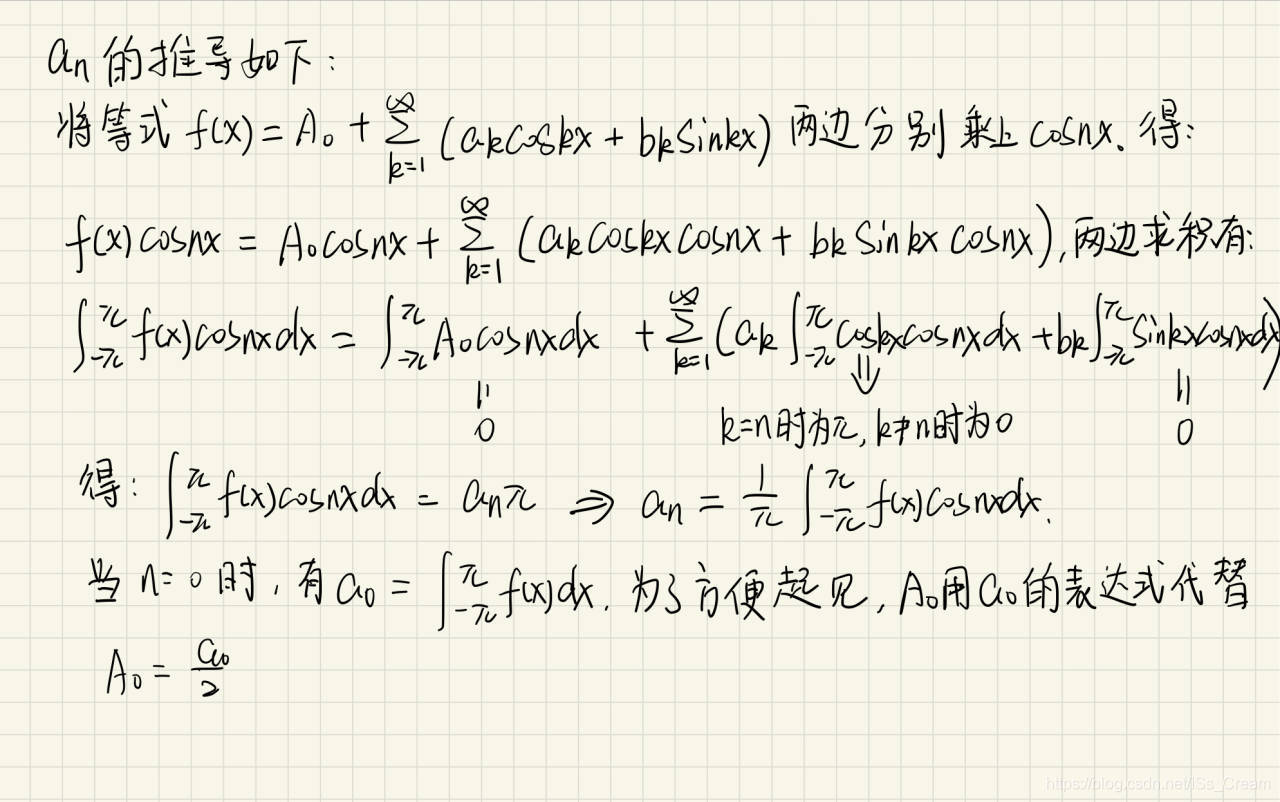 an 的推导如下:
将等式 f(x) = A₀ + ∑_{k=1}^{∞} (akcoskx + bksinkx) 两边分别乘上 cosnx. 得:
f(x)cosnx = A₀cosnx + ∑_{k=1}^{∞} (akcoskxcosnx + bksinkxcosnx), 两边求积有:
∫_{-π}^{π} f(x)cosnxdx = ∫_{-π}^{π} A₀cosnxdx + ∑_{k=1}^{∞} (ak ∫_{-π}^{π} coskxcosnxdx + bk ∫_{-π}^{π} sinkxcosnxdx)
|| ⇓ ||
0 k=n时为π, k≠n时为0 0
得: ∫_{-π}^{π} f(x)cosnxdx = anπ ⇒ an = 1/π ∫_{-π}^{π} f(x)cosnxdx.
当 n=0 时, 有 a₀ = ∫_{-π}^{π} f(x)dx. 为了方便起见, A₀用a₀的表达式代替
A₀ = a₀/2
https://blog.csdn.net/ISs_Cream